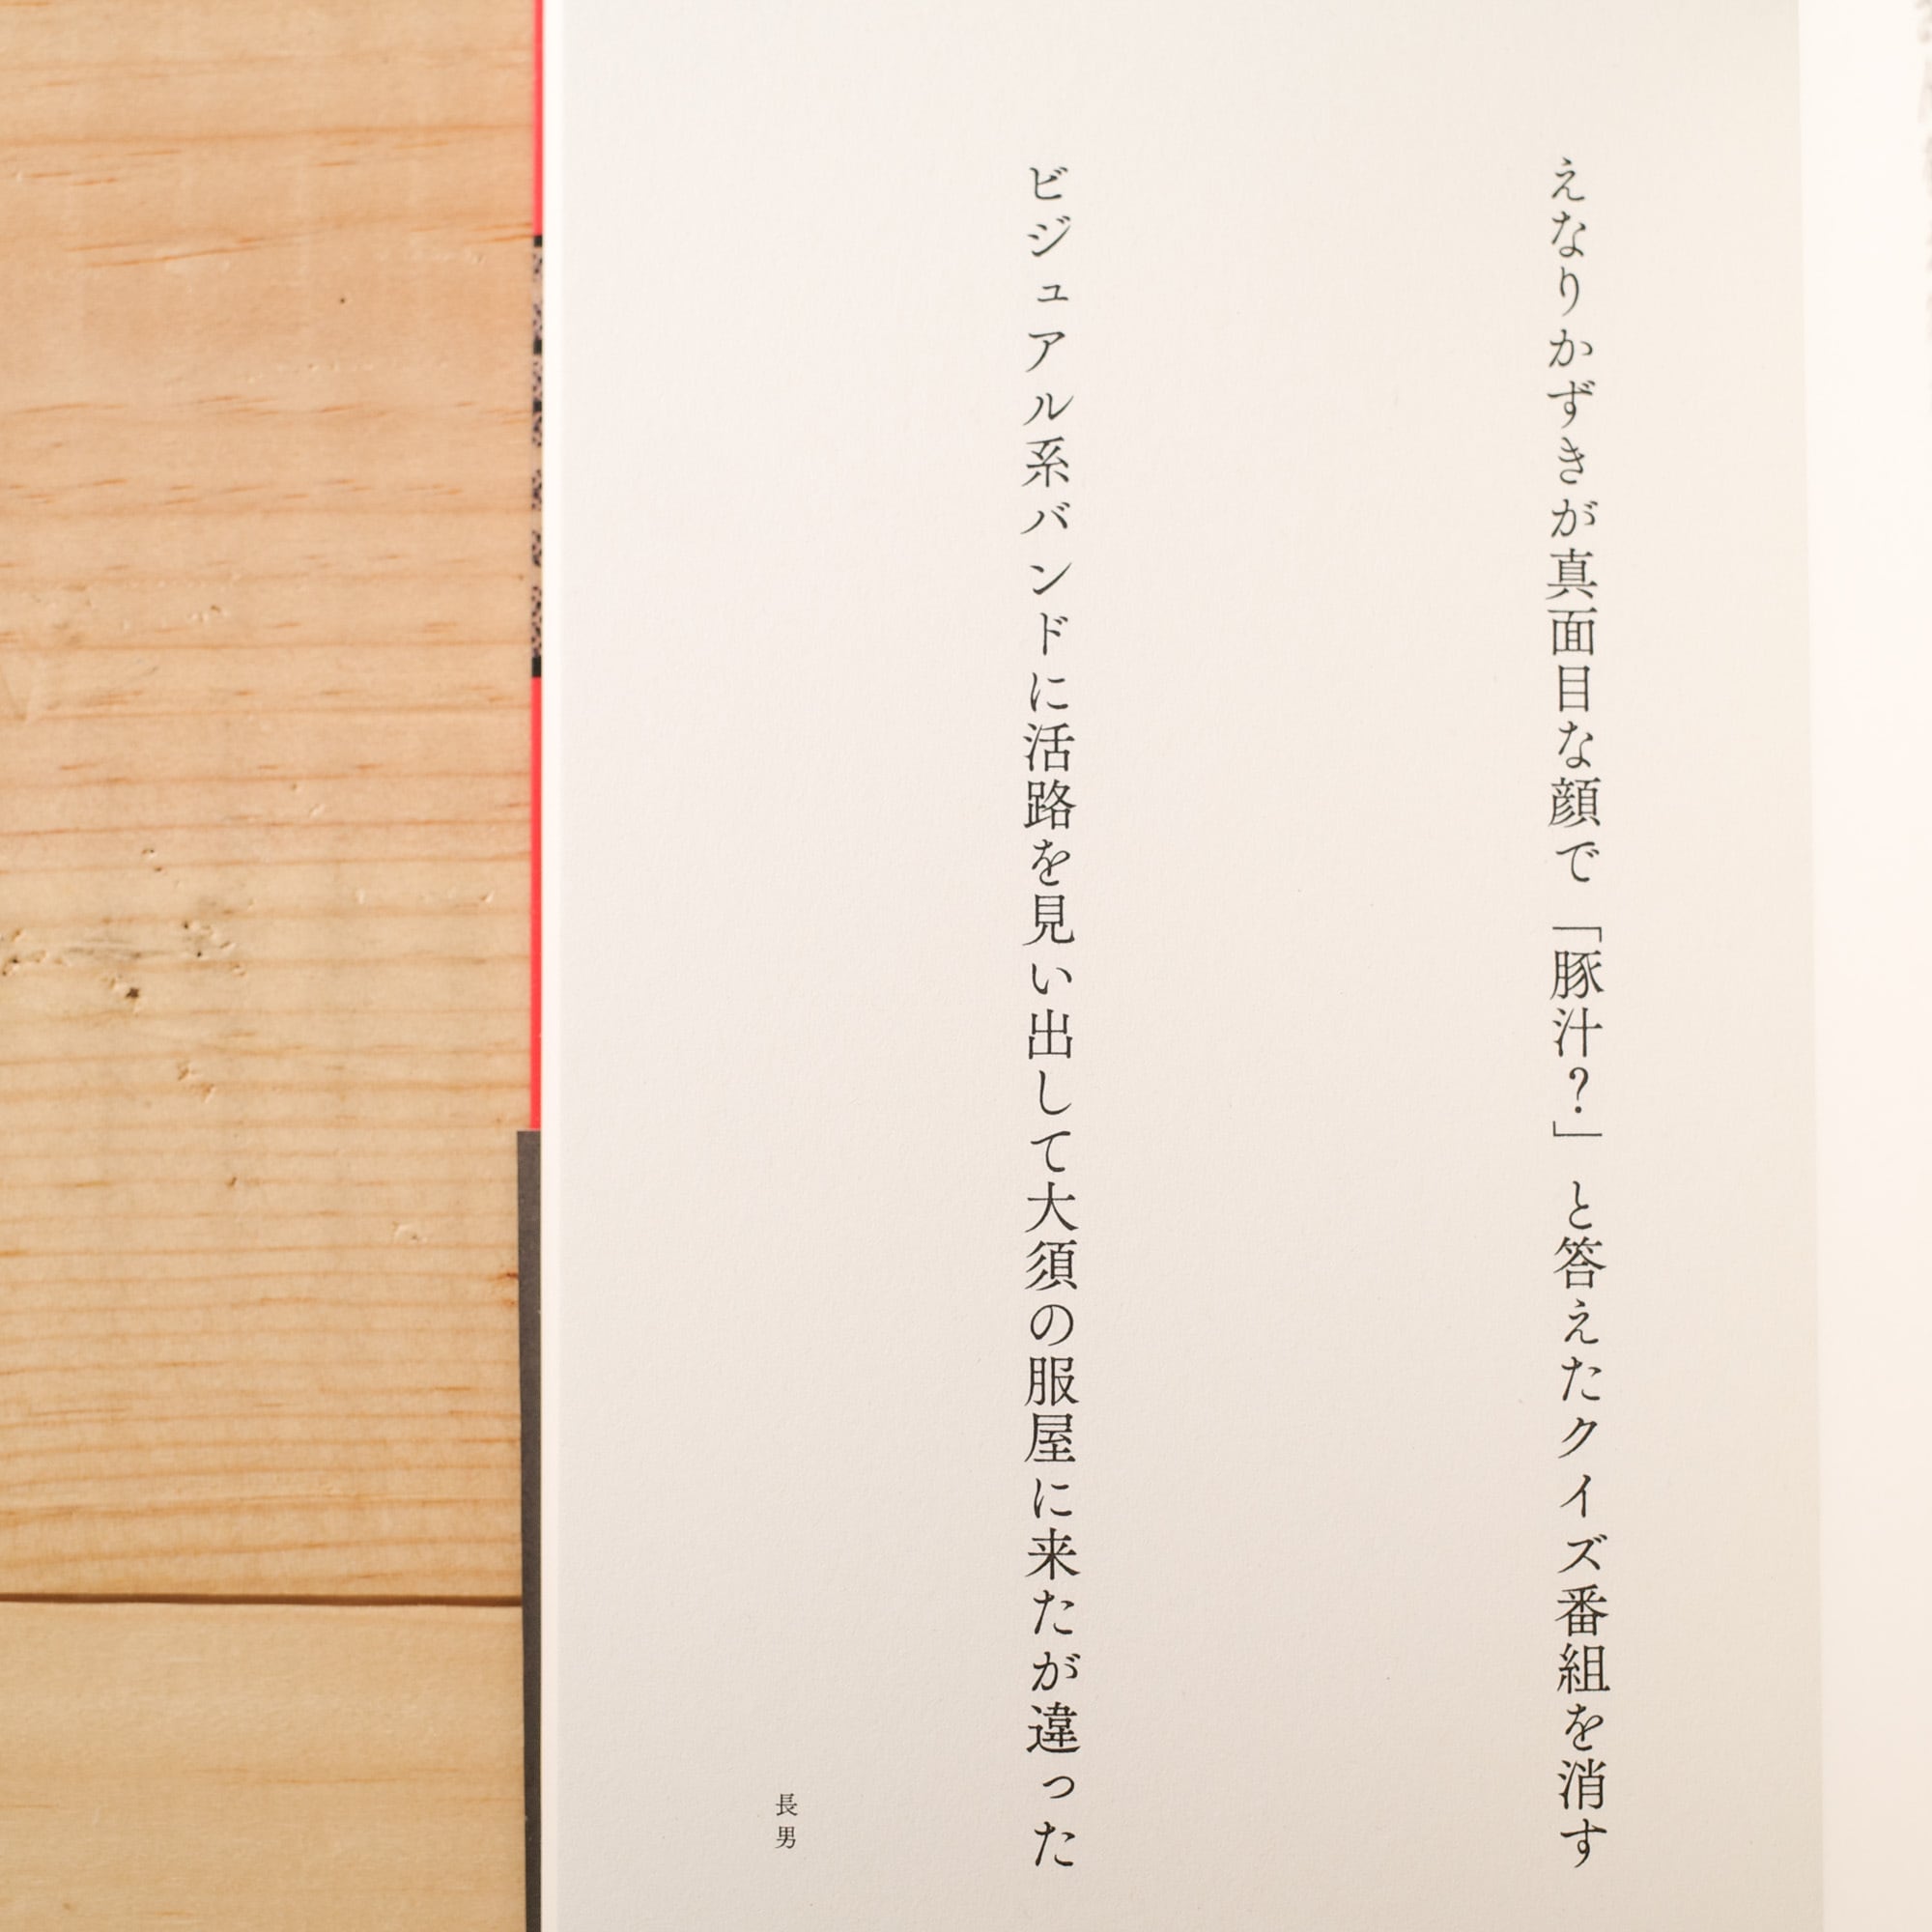 えなりかずきが真面目な顔で「豚汁？」と答えたクイズ番組を消す
ビジュアル系バンドに活路を見い出して大須の服屋に来たが違った
長男